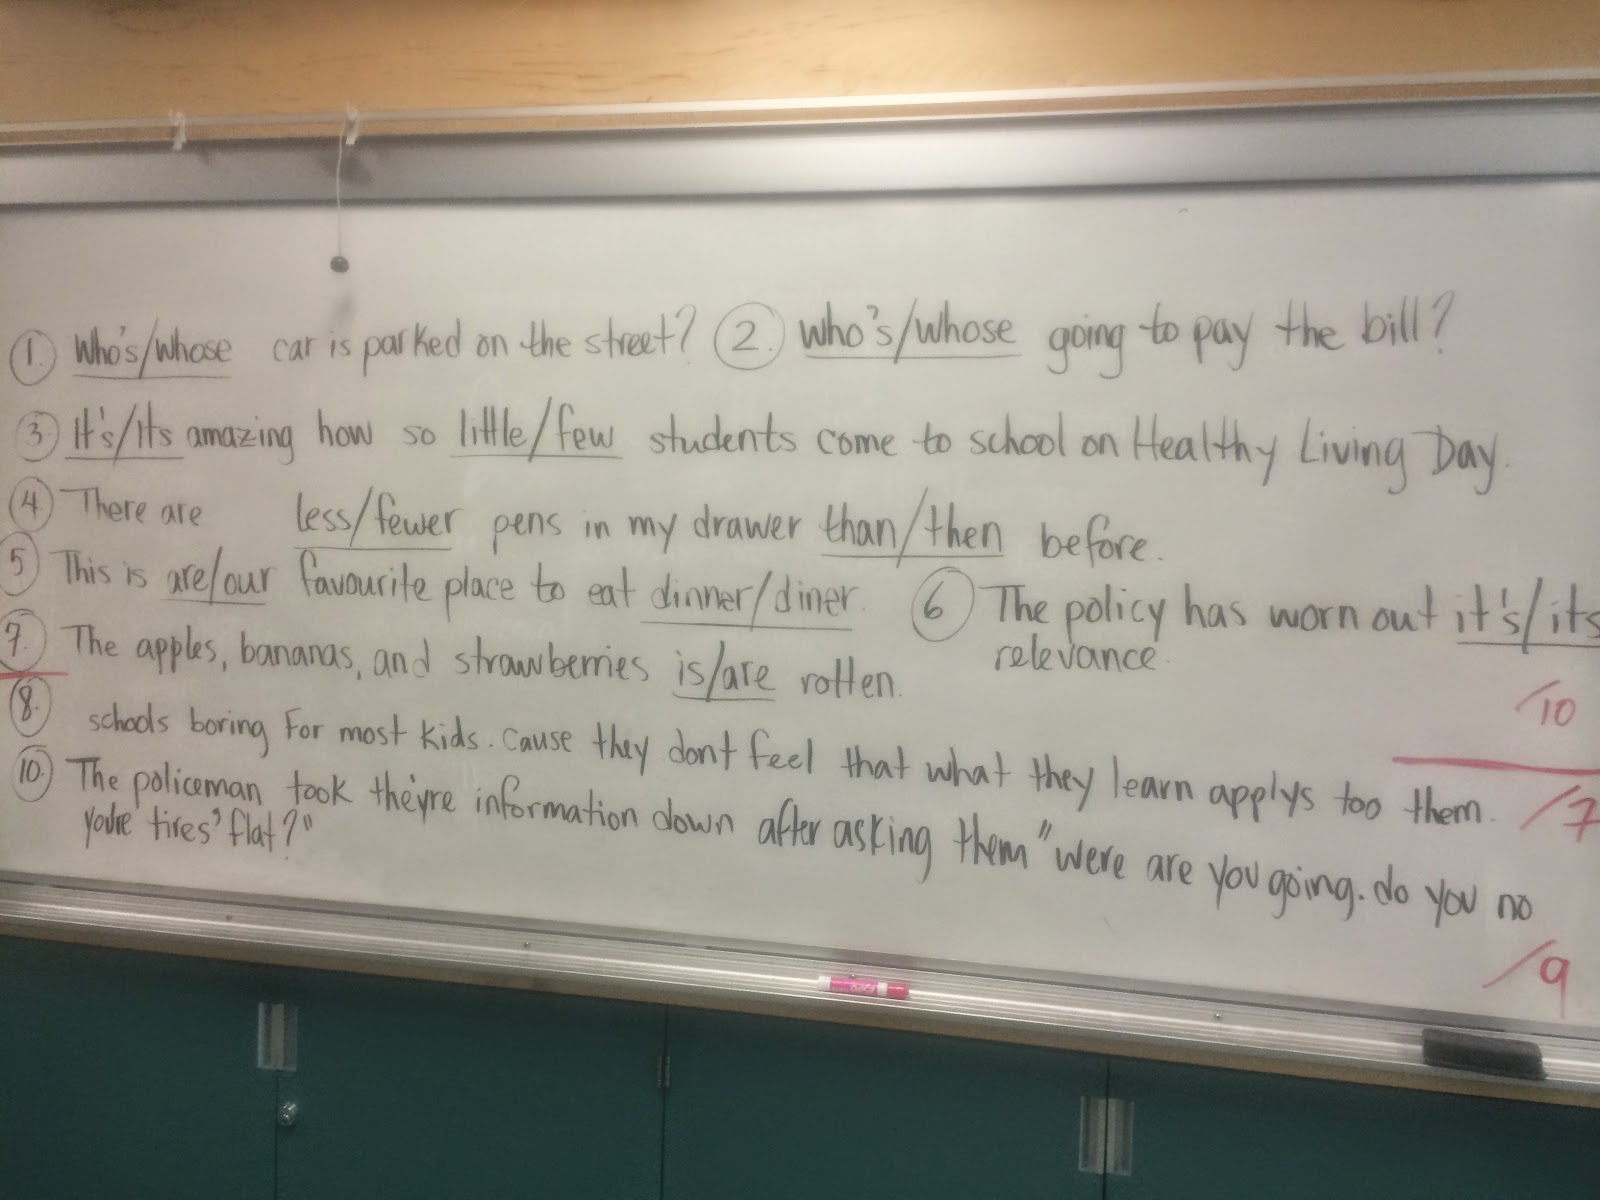 1. Who's/whose car is parked on the street? 2. who's/whose going to pay the bill?
3. It's/Its amazing how so little/few students come to school on Healthy Living Day.
4 There are less/fewer pens in my drawer than/then before.
5 This is are/our favourite place to eat dinner/diner. 6 The policy has worn out it's/its
relevance.
7. The apples, bananas, and strawberries is/are rotten.
/10
8. schools boring For most kids. cause they dont feel that what they learn applys too them.
/7
10. The policeman took they're information down after asking them "were are you going. do you no
you're tires' flat?"
/9
EXPO